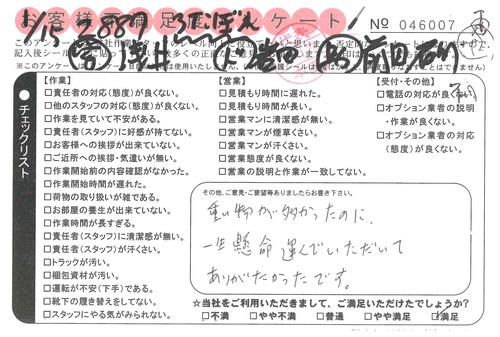 お客様満足アンケート
No 046007
チェックリスト
【作業】
□責任者の対応(態度)が良くない。
□他のスタッフの対応(態度)が良くない。
□作業を見ていて不安がある。
□責任者(スタッフ)に好感が持てない。
□お客様への挨拶が出来ていない。
□ご近所への挨拶・気遣いが無い。
□作業開始前の内容確認がなかった。
□作業開始時間が遅れた。
□荷物の取り扱いが雑である。
□お部屋の養生が出来ていない。
□作業時間が長すぎる。
□責任者(スタッフ)に清潔感が無い。
□責任者(スタッフ)が汗くさい。
□トラックが汚い。
□梱包資材が汚い。
□運転が不安(下手)である。
□靴下の履き替えをしてない。
□スタッフにやる気がみられない。
【営業】
□見積もりに遅れた。
□見積もり時間が長い。
□営業マンに清潔感が無い。
□営業マンが煙草くさい。
□営業マンが汗くさい。
□営業態度が良くない。
□営業の説明と作業が一致してない。
【受付・その他】
□電話の対応が良くない。
□オプション業者の説明
・作業が良くない。
□オプション業者の対応
(態度)が良くない。
その他、ご意見・ご要望等ありましたらお書き下さい。
重い物が多かったのに、
一生懸命運んでいただいて
ありがたかったです。
☆当社をご利用いただきまして、ご満足いただけたでしょうか?
□不満 □やや不満 □普通 □やや満足 □満足